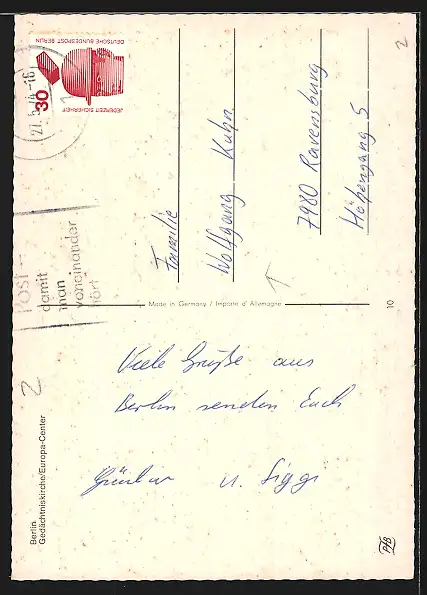 Berlin
Gedächtniskirche/Europa-Center
Viele Grüße aus
Berlin senden Euch
Günter u. Siggi
Made in Germany / Importé d'Allemagne
10
PfB
Post -
damit
man
voneinander
hört
DEUTSCHE BUNDESPOST BERLIN
JEDERZEIT SICHERHEIT
30
Familie
Wolfgang Kuhn
7980 Ravensburg
2
2